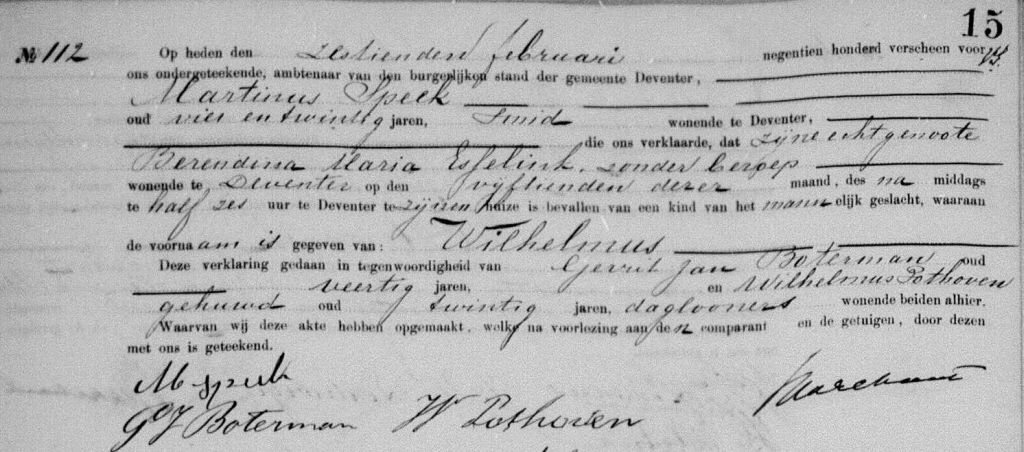 15
№ 112 Op heden den zestienden februari negentien honderd verscheen voor
ons ondergeteekende, ambtenaar van den burgerlijken stand der gemeente Deventer,
Martinus Speek
oud vier en twintig jaren, Smid wonende te Deventer,
die ons verklaarde, dat zijne echtgenoote
Berendina Maria Esselink, zonder beroep
wonende te Deventer op den vijftienden dezer maand, des na middags
te half zes uur te Deventer te zijnen huize is bevallen van een kind van het mannelijk geslacht, waaraan
de voornaam is gegeven van: Wilhelmus
Deze verklaring gedaan in tegenwoordigheid van Gerrit Jan Boterman oud
veertig jaren, en Wilhelmus Pothoven
oud twintig jaren, daglooners wonende beiden alhier.
Waarvan wij deze akte hebben opgemaakt, welke na voorlezing aan den comparant en de getuigen, door dezen
met ons is geteekend.
M Speek
GJ Boterman W Pothoven